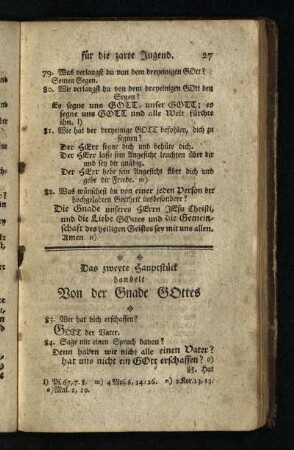 für die zarte Jugend. 27
79. Was verlangst du von dem dreyeinigen GOtt?
Seinen Segen.
80. Wie verlangst du von dem dreyeinigen GOtt den
Segen?
Es segne uns GOTT, unser GOTT; es
segne uns GOTT und alle Welt fürchte
ihn. l)
81. Wie hat der dreyeinige GOTT befohlen, dich zu
segnen?
Der HErr segne dich und behüte dich.
Der HErr lasse sein Angesicht leuchten über dir
und sey dir gnädig.
Der HErr hebe sein Angesicht über dich und
gebe dir Friede. m)
82. Was wünschest du von einer jeden Person der
hochgelobten Gottheit insbesondere?
Die Gnade unseres HErrn JEsu Christi,
und die Liebe GOttes und die Gemein-
schaft des heiligen Geistes sey mit uns allen.
Amen. n)
Das zweyte Hauptstück
handelt
Von der Gnade GOttes
83. Wer hat dich erschaffen?
GOTT der Vater.
84. Sage mir einen Spruch davon?
Denn haben wir nicht alle einen Vater?
hat uns nicht ein GOtt erschaffen? o)
85. Hat
l) Ps. 67, 7. 8. m) 4 Mos. 6, 24-26. n) 2 Kor. 13, 13.
o) Mal. 2, 10.